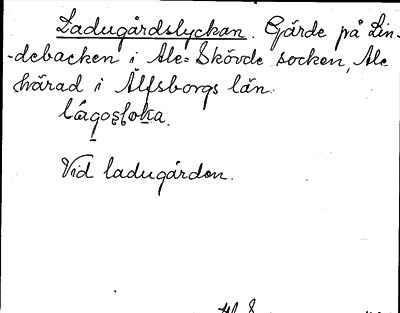 Ladugårdslyckan. Gärde på Lin-
-debacken i Ale-Skövde socken, Ale
härad i Älfsborgs län.
Vid ladugården.